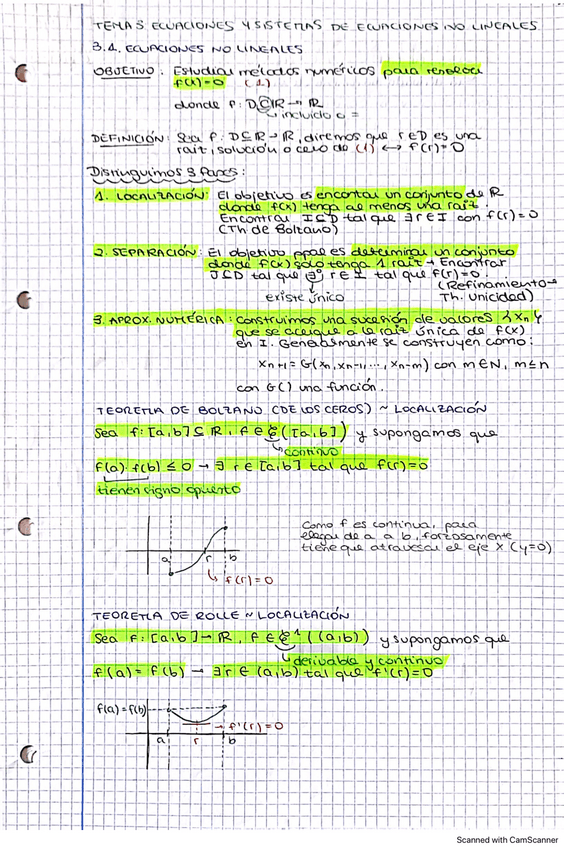 TEMA 3 ECUACIONES Y SISTEMAS DE ECUACIONES NO LINEALES
3.1. ECUACIONES NO LINEALES
OBJETIVO: Estudiar métodos numéricos para resolver
f(x)=0 (1)
donde f: D⊆ℝ → ℝ
↳ incluido o =
DEFINICIÓN: Sea f: D⊆ℝ → ℝ, diremos que r∈D es una
raíz, solución o cero de (1) ↔ f(r)=0
Distinguimos 3 fases:
1. LOCALIZACIÓN: El objetivo es encontrar un conjunto de ℝ
donde f(x) tenga al menos una raíz.
Encontrar I⊆D tal que ∃r∈I con f(r)=0
(Th de Bolzano)
2. SEPARACIÓN: El objetivo ppal es determinar un conjunto
donde f(x) solo tenga 1 raíz → Encontrar
J⊆D tal que ∃° r∈I tal que f(r)=0.
existe único
(Refinamiento →
Th. Unicidad)
3. APROX. NUMÉRICA: construimos una sucesión de valores {xn}
que se acerque a la raíz única de f(x)
en I. Generalmente se construyen como:
xn+1 = G(xn, xn-1, ..., xn-m) con m∈N, m≤n
con G() una función.
TEOREMA DE BOLZANO (DE LOS CEROS) ~ LOCALIZACIÓN
Sea f: [a,b]⊆ℝ, f∈𝒞([a,b]) y supongamos que
↳ continuo
f(a)·f(b) ≤ 0 → ∃ r∈[a,b] tal que f(r)=0
tienen signo opuesto
a r b
↳ f(r)=0
Como f es continua, para
llegar de a a b, forzosamente
tiene que atravesar el eje X (y=0)
TEOREMA DE ROLLE ~ LOCALIZACIÓN
Sea f: [a,b] → ℝ, f∈𝒞¹((a,b)) y supongamos que
↳ derivable y continuo
f(a)=f(b) → ∃r∈(a,b) tal que f'(r)=0
f(a)=f(b)
→ f'(r)=0
a r b
Scanned with CamScanner